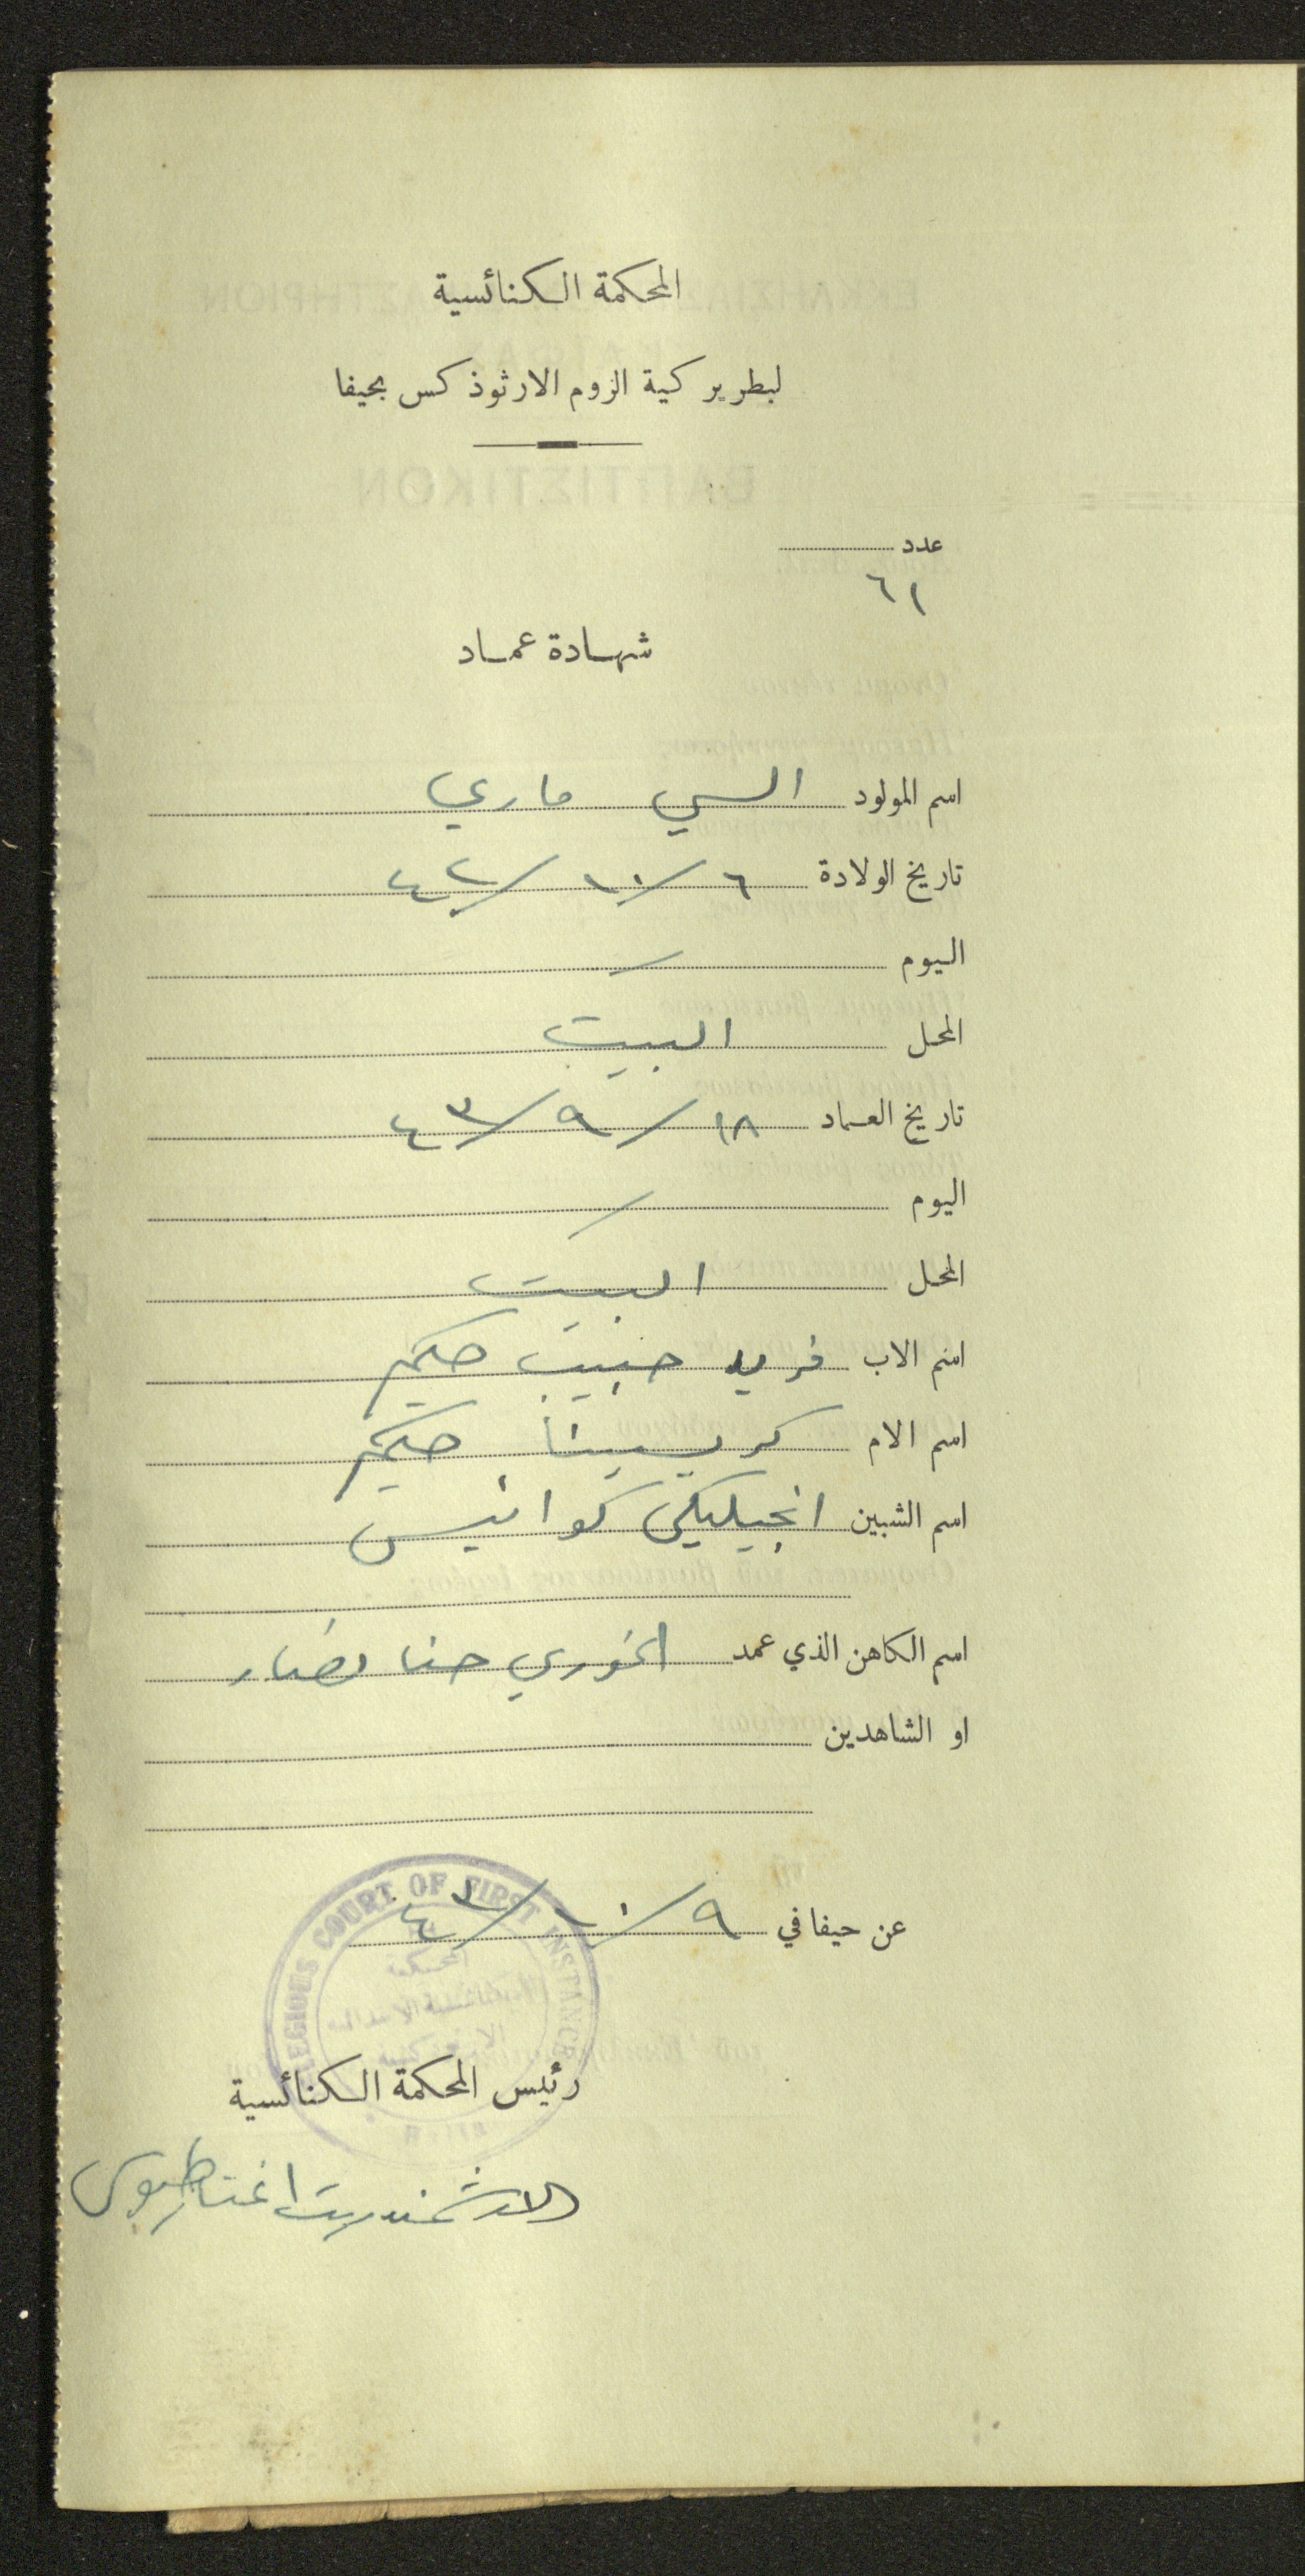 المحكمة الكنائسية
لبطريركية الروم الارثوذكس بحيفا
عدد
٦١
شهادة عماد
اسم المولود السي ماري
تاريخ الولادة ٦/١٠/٤٢
اليوم /
المحل البيت
تاريخ العماد ١٨/٩/٤٣
اليوم /
المحل البيت
اسم الاب فريد حبيب حكيم
اسم الام كريستينا حكيم
اسم الشبين انجيليكي كوانيس
اسم الكاهن الذي عمد الخوري حنا
او الشاهدين
عن حيفا في ٩/١٠/٤٣
RELEGIOUS COURT OF FIRST INSTANCE
المحكمة
الكنائسية الابتدائية
Haifa
رئيس المحكمة الكنائسية
الارشمندريت اغناطيوس